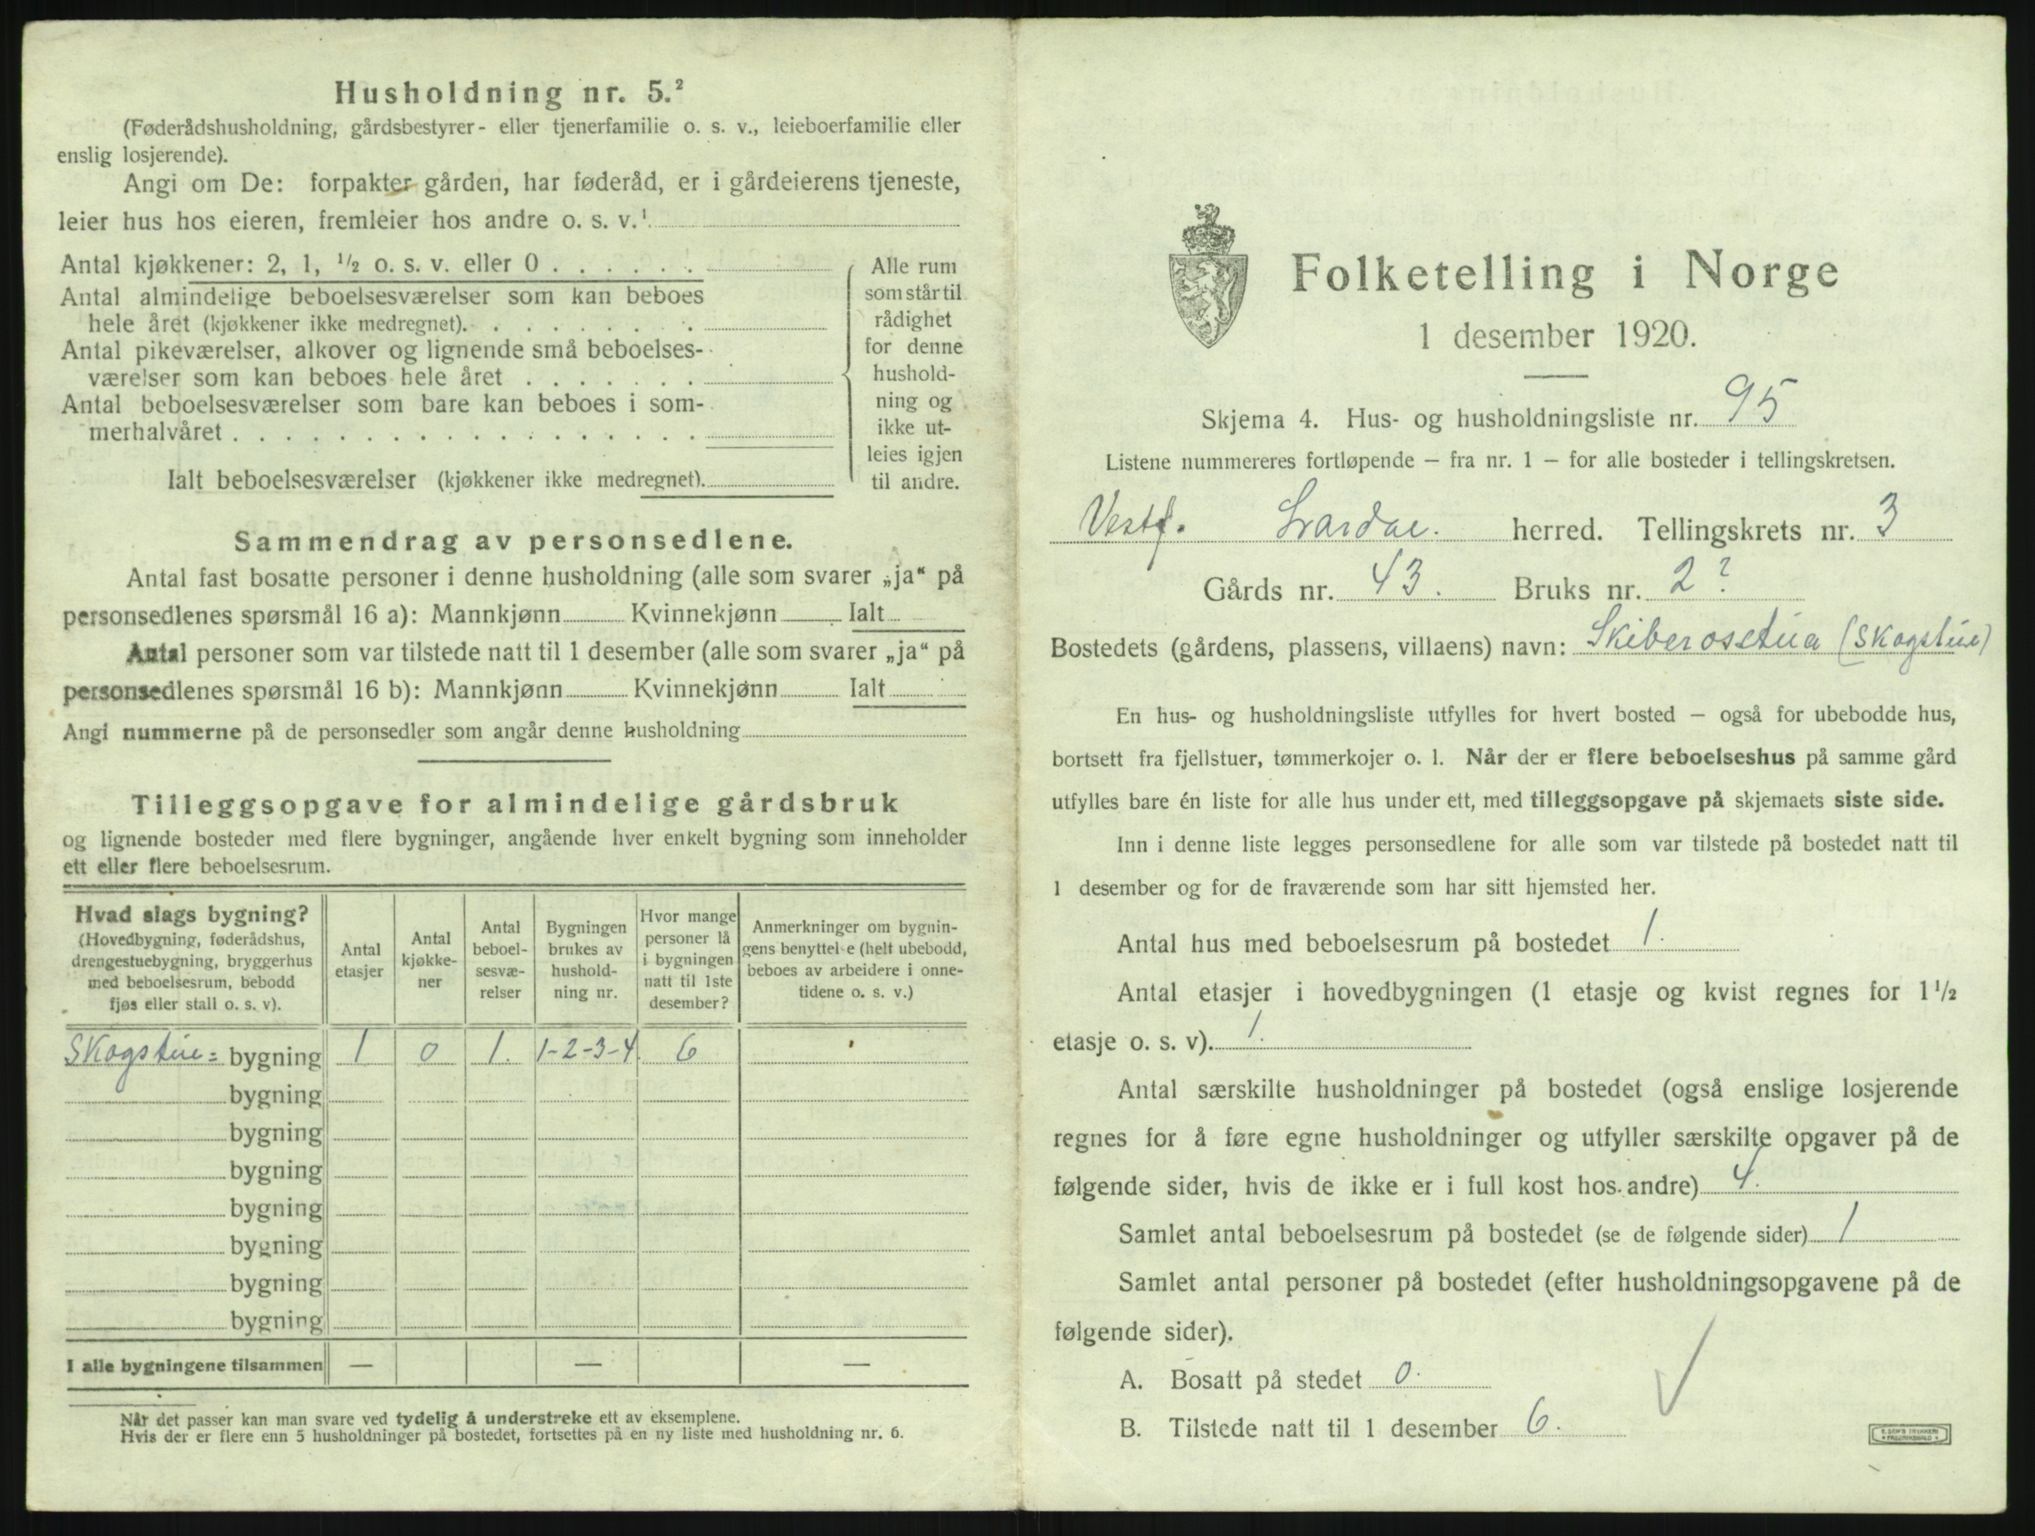 Husholdning nr. 5.²
(Føderådshusholdning, gårdsbestyrer- eller tjenerfamilie o. s. v., leieboerfamilie eller
enslig losjerende).
Angi om De: forpakter gården, har føderåd, er i gårdeierens tjeneste,
leier hus hos eieren, fremleier hos andre o. s. v.¹
Antal kjøkkener: 2, 1, ¹/₂ o. s. v. eller 0 . . . . . .
Antal almindelige beboelsesværelser som kan beboes
hele året (kjøkkener ikke medregnet). . . . . . . . .
Antal pikeværelser, alkover og lignende små beboelses-
værelser som kan beboes hele året . . . . . . .
Antal beboelsesværelser som bare kan beboes i som-
merhalvåret . . . . . . . . . . . . . . . . . .
Ialt beboelsesværelser (kjøkkener ikke medregnet).
Alle rum
som står til
rådighet
for denne
hushold-
ning og
ikke ut-
leies igjen
til andre.
Sammendrag av personsedlene.
Antal fast bosatte personer i denne husholdning (alle som svarer „ja“ på
personsedlenes spørsmål 16 a): Mannkjønn Kvinnekjønn Ialt
Antal personer som var tilstede natt til 1 desember (alle som svarer „ja“ på
personsedlenes spørsmål 16 b): Mannkjønn Kvinnekjønn Ialt
Angi nummerne på de personsedler som angår denne husholdning
Tilleggsopgave for almindelige gårdsbruk
og lignende bosteder med flere bygninger, angående hver enkelt bygning som inneholder
ett eller flere beboelsesrum.
Hvad slags bygning?
(Hovedbygning, føderådshus,
drengestuebygning, bryggerhus
med beboelsesrum, bebodd
fjøs eller stall o. s. v).
Antal
etasjer
Antal
kjøkke-
ner
Antal
beboel-
sesvæ-
relser
Bygningen
brukes av
hushold-
ning nr.
Hvor mange
personer lå
i bygningen
natt til 1ste
desember?
Anmerkninger om bygnin-
gens benyttelse (helt ubebodd,
beboes av arbeidere i onne-
tidene o. s. v.)
Skogstue= bygning 1 0 1. 1-2-3-4. 6
bygning
bygning
bygning
bygning
bygning
bygning
bygning
I alle bygningene tilsammen — — —
Når det passer kan man svare ved tydelig å understreke ett av eksemplene.
Hvis der er flere enn 5 husholdninger på bostedet, fortsettes på en ny liste med husholdning nr. 6.
Folketelling i Norge
1 desember 1920.
Skjema 4. Hus- og husholdningsliste nr. 95
Listene nummereres fortløpende – fra nr. 1 – for alle bosteder i tellingskretsen.
herred. Tellingskrets nr. 3
Gårds nr. 43. Bruks nr. 2?
Bostedets (gårdens, plassens, villaens) navn: Skiberosstua (Skogstue)
En hus- og husholdningsliste utfylles for hvert bosted – også for ubebodde hus,
bortsett fra fjellstuer, tømmerkojer o. l. Når der er flere beboelseshus på samme gård
utfylles bare én liste for alle hus under ett, med tilleggsopgave på skjemaets siste side.
Inn i denne liste legges personsedlene for alle som var tilstede på bostedet natt til
1 desember og for de fraværende som har sitt hjemsted her.
Antal hus med beboelsesrum på bostedet 1.
Antal etasjer i hovedbygningen (1 etasje og kvist regnes for 1¹/₂
etasje o. s. v). 1.
Antal særskilte husholdninger på bostedet (også enslige losjerende
regnes for å føre egne husholdninger og utfyller særskilte opgaver på de
følgende sider, hvis de ikke er i full kost hos andre) 4.
Samlet antal beboelsesrum på bostedet (se de følgende sider) 1
Samlet antal personer på bostedet (efter husholdningsopgavene på de
følgende sider).
A. Bosatt på stedet 0.
B. Tilstede natt til 1 desember 6.